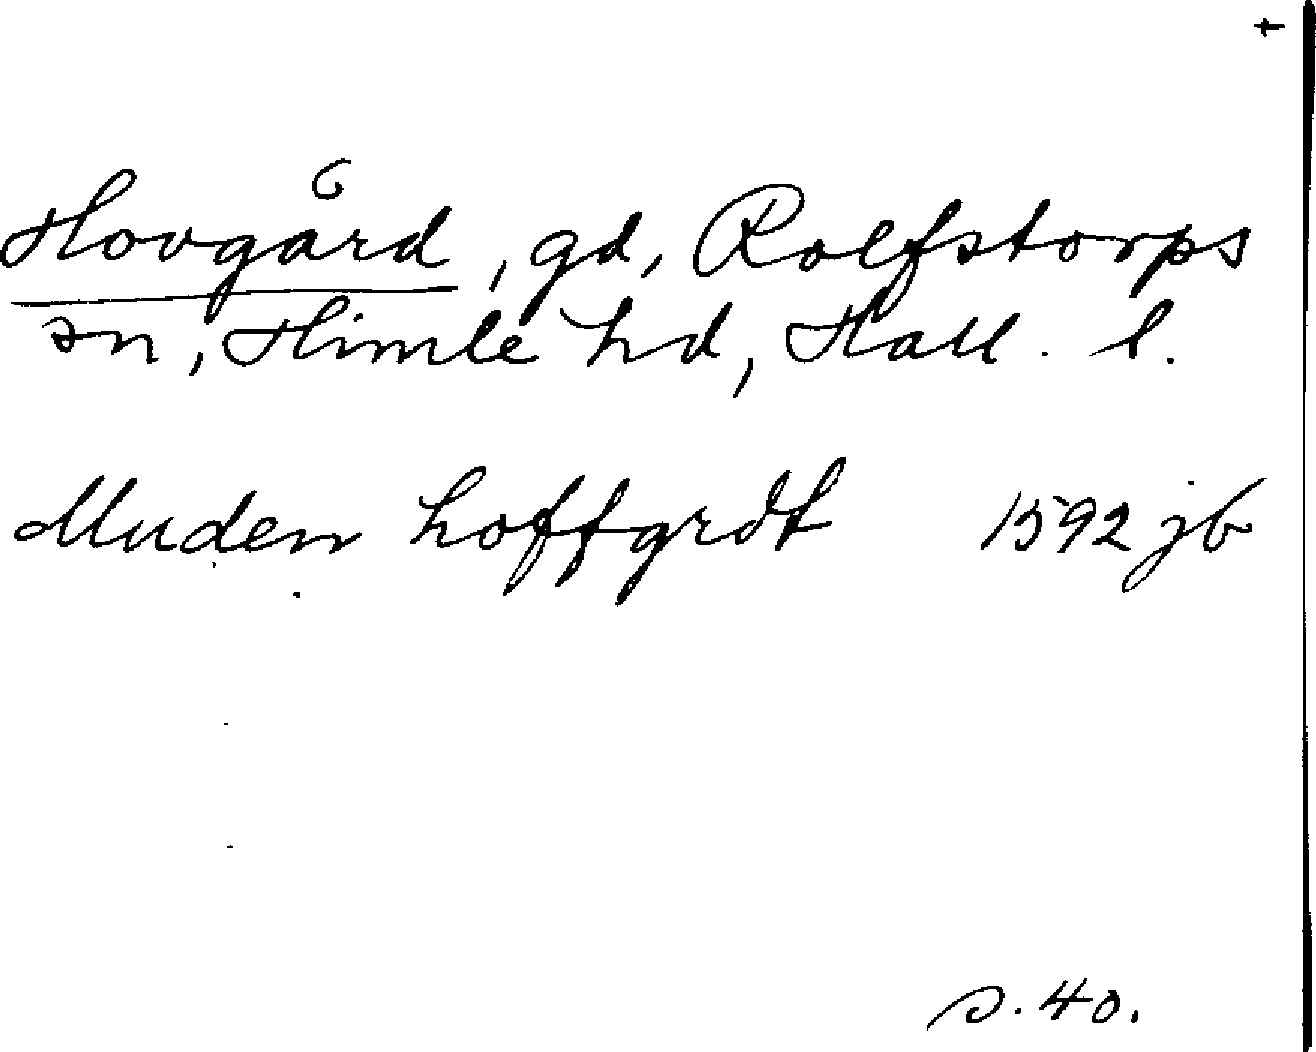 Hovgård, gd, Rolfstorps
sn, Himle hd, Hall. l.
Muden hoffgrdt 1592 jb
s. 40.